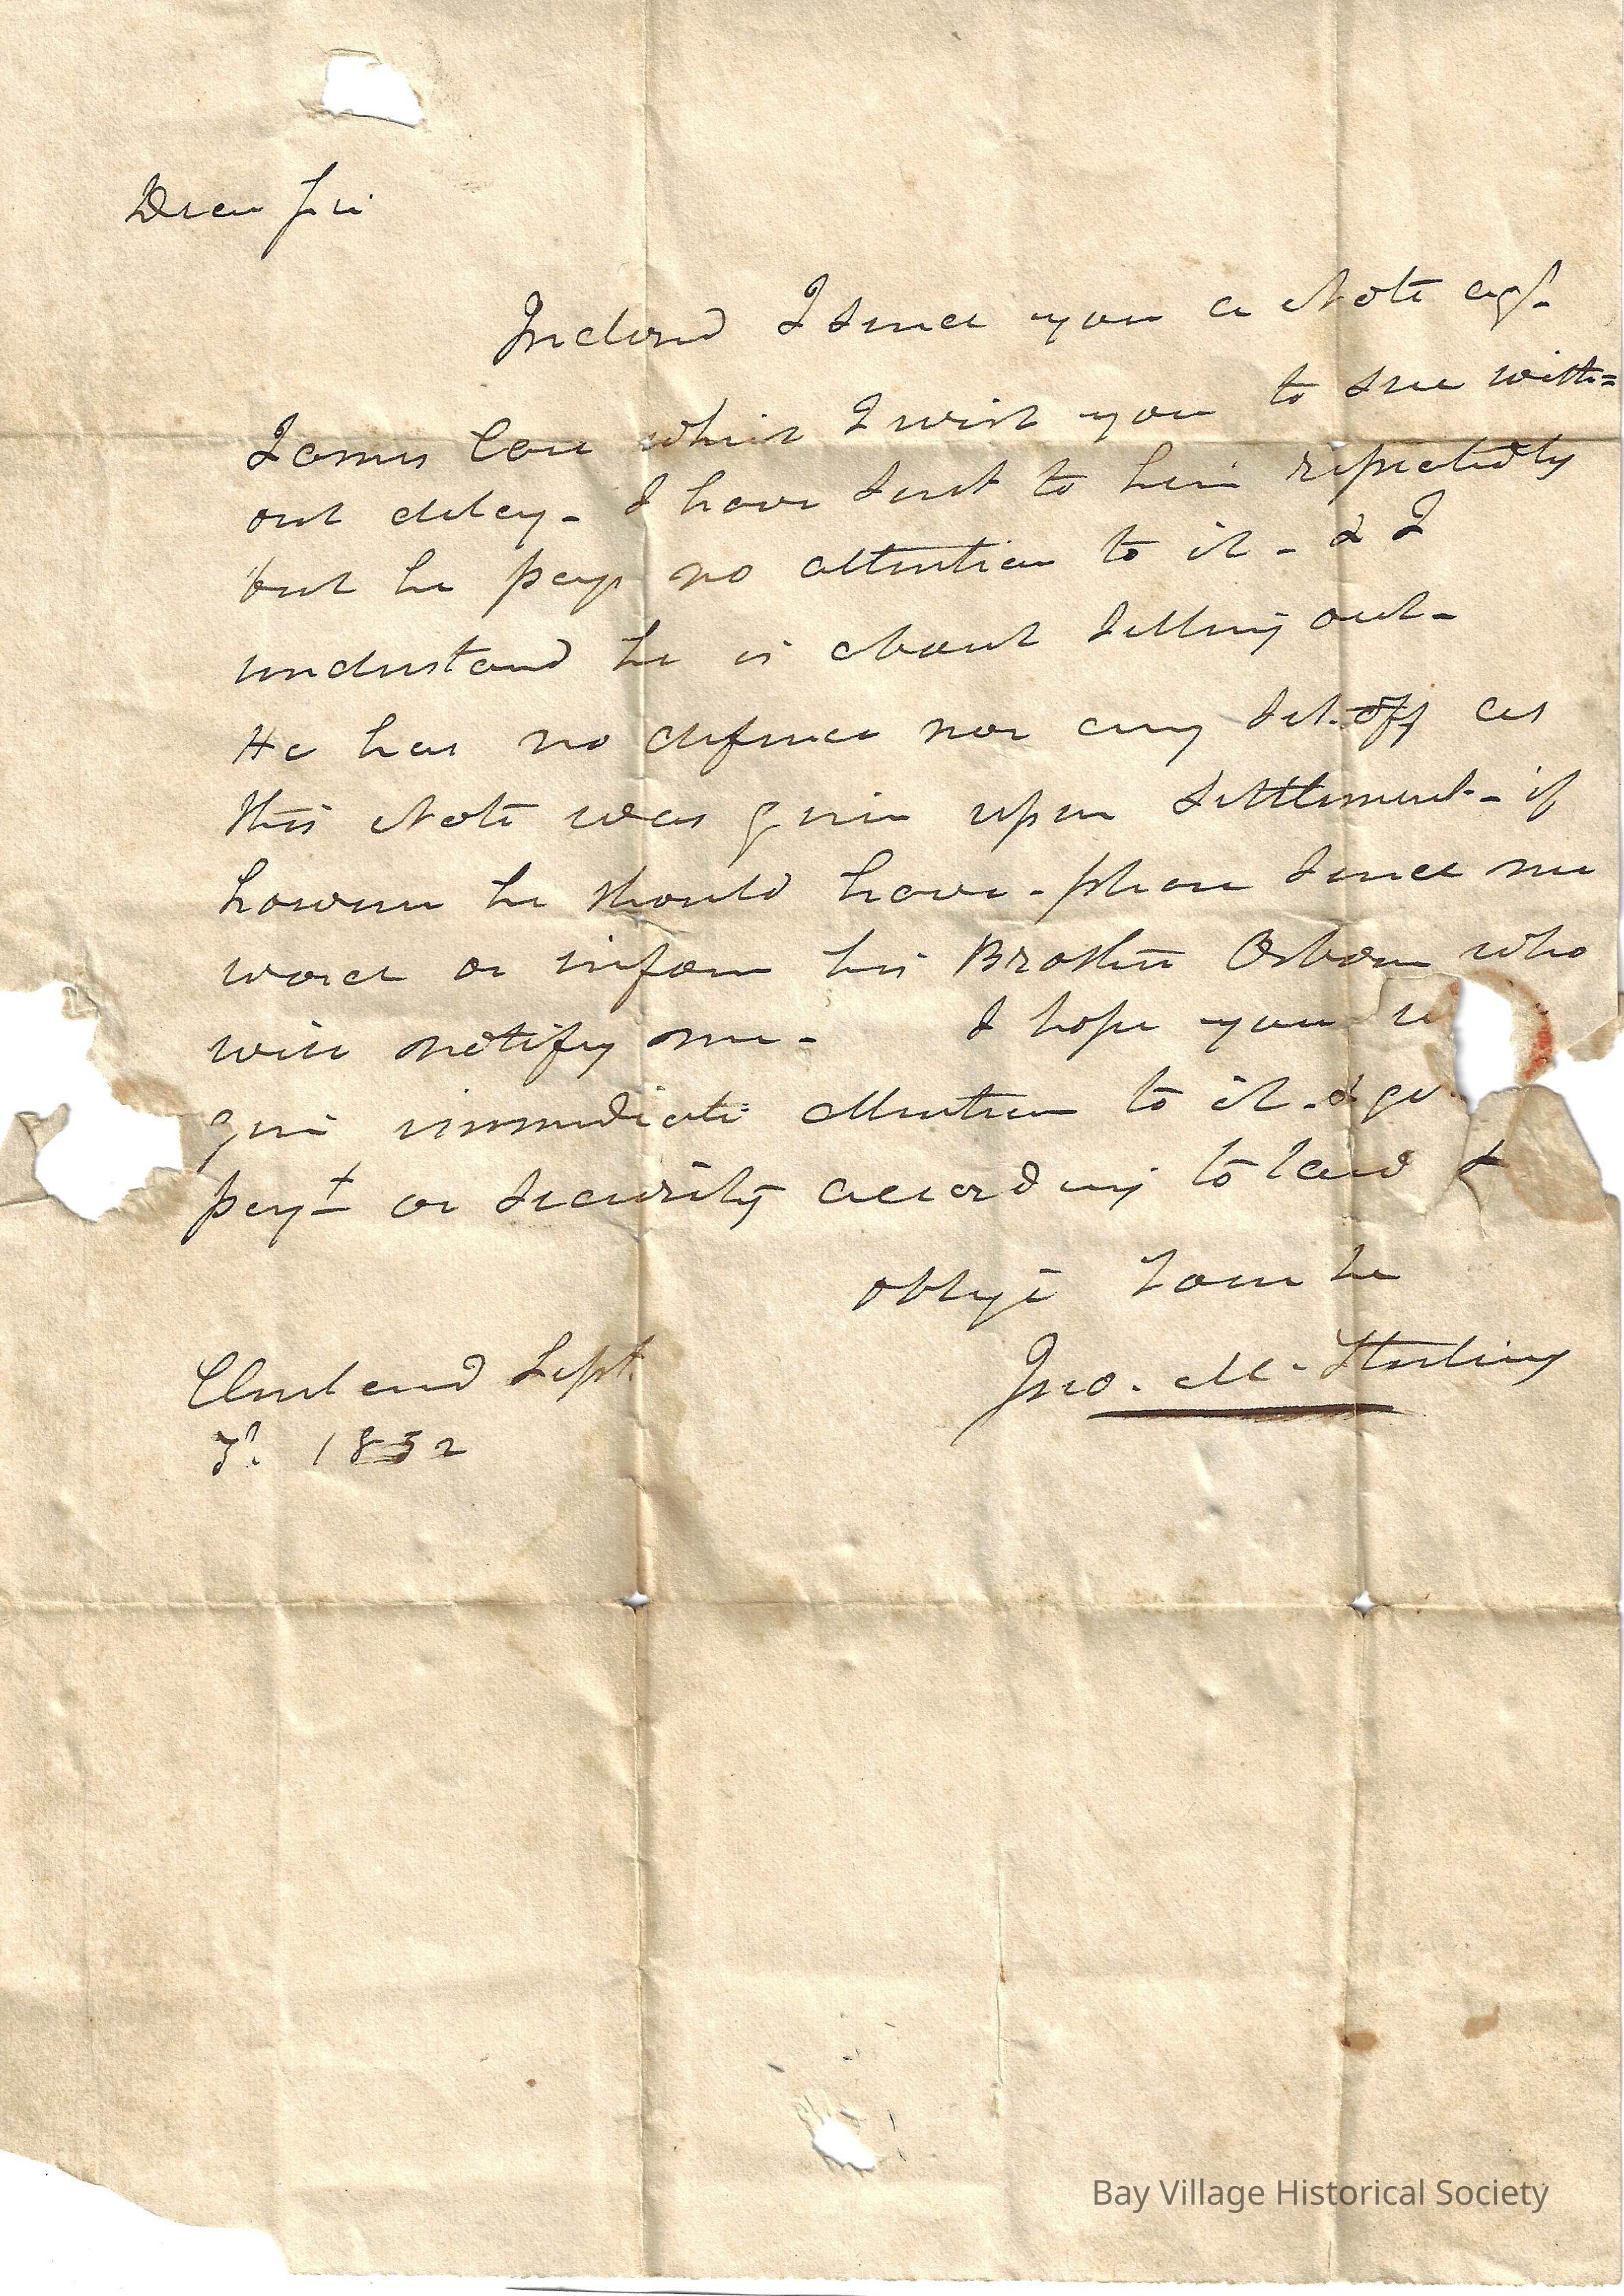 Dear Sir
Inclosed I send you a Note agt.
James Case which I wish you to sue with=
out delay - I have sent to him repeatedly
but he pays no attention to it - & I
understand he is about selling out -
He has no defence nor any Set-off as
this Note was given upon settlement - if
however he should have - please send me
word or inform his Brother Osborn who
will notify me - I hope you
give immediate attention to it - &
payt or security according to law &
oblige
Jno. M. Sterling
Cleveland Sept.
1832
Bay Village Historical Society